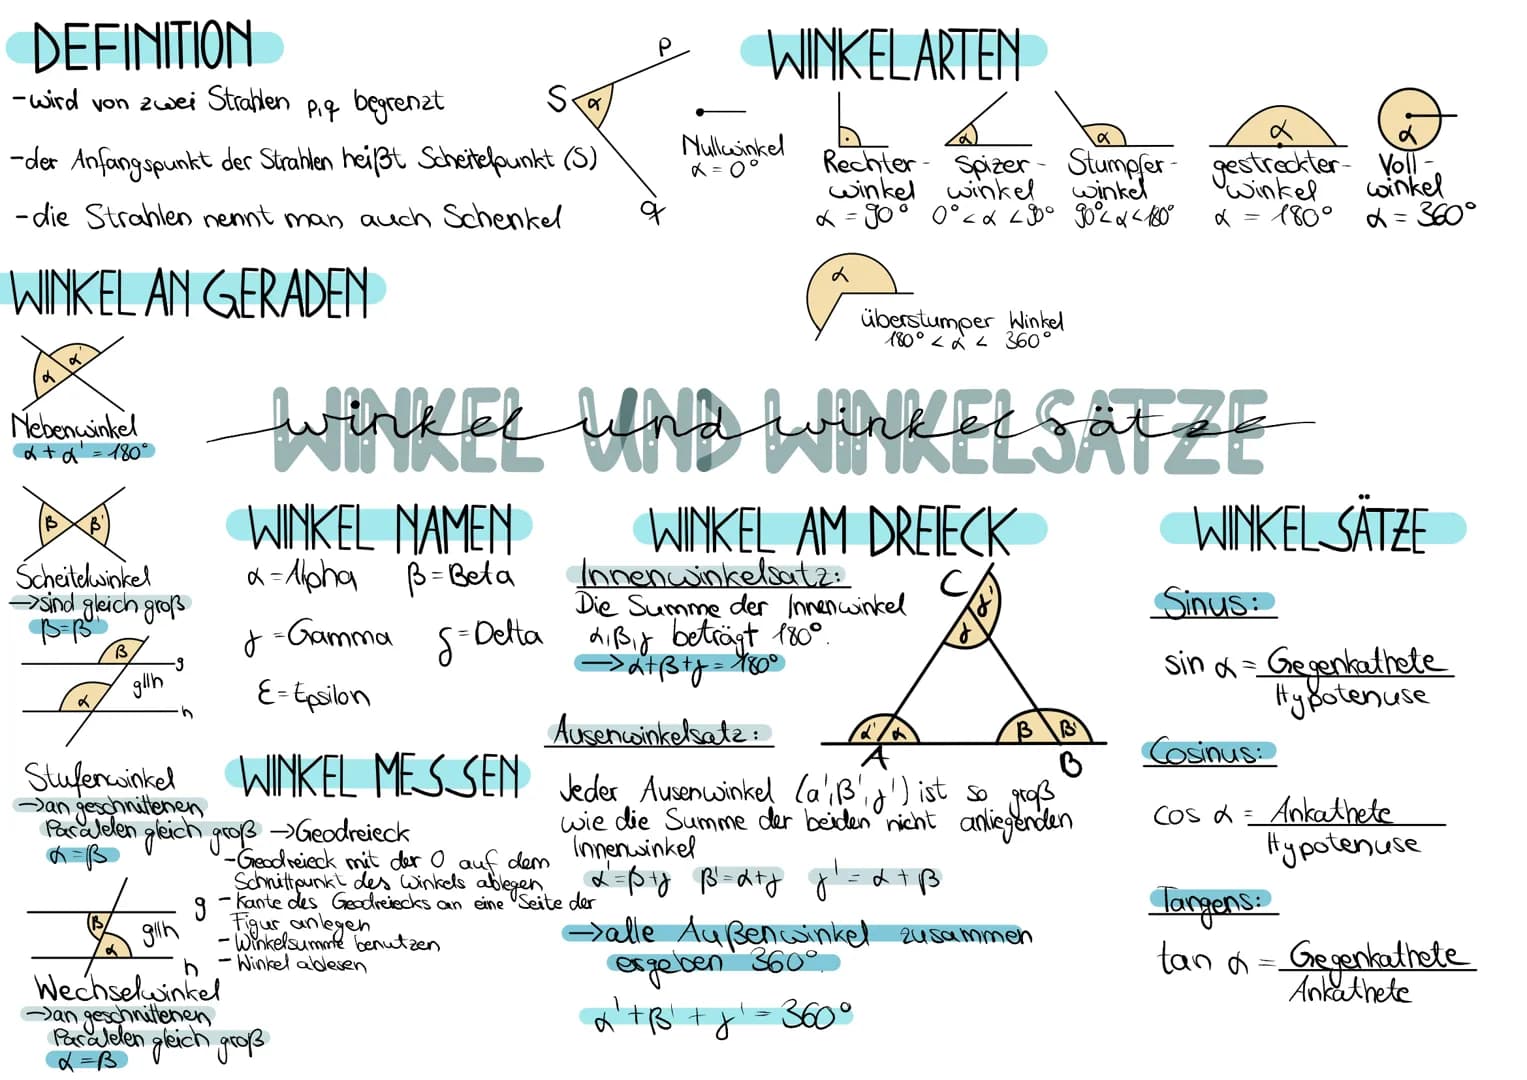 DEFINITION
-wird von zwei Strahlen p,q begrenzt
-der Anfangspunkt der Strahlen heißt Scheitelpunkt (S)
-die Strahlen nennt man auch Schenkel
S
α
P
q
WINKELARTEN
Nullwinkel
α = 0°
Rechter-
winkel
α = 90°
α
Spizer-
winkel
0° < α < 90°
α
Stumpfer-
winkel
90° < α < 180°
α
gestreckter-
winkel
α = 180°
α
Voll-
winkel
α = 360°
α
überstumper Winkel
180° < α < 360°
WINKEL AN GERADEN
α α'
Nebenwinkel
α + α' = 180°
β β'
Scheitelwinkel
→sind gleich groß
β=β'
β
g
g||h
α
h
Stufenwinkel
→an geschnittenen
Paralelen gleich groß
α=β
g
β
g||h
α
h
Wechselwinkel
→an geschnittenen
Paralelen gleich groß
α=β
WINKEL UND WINKELSÄTZE
winkel und winkelsätze
WINKEL NAMEN
α=Alpha β=Beta
γ=Gamma δ=Delta
ε=Epsilon
WINKEL MESSEN
→Geodreieck
-Geodreieck mit der 0 auf dem
Schnittpunkt des Winkels ablegen
-Kante des Geodreiecks an eine Seite der
Figur anlegen
-Winkelsumme benutzen
-Winkel ablesen
WINKEL AM DREIECK
Innenwinkelsatz:
Die Summe der Innenwinkel
α,β,γ beträgt 180°.
→α+β+γ=180°
C
γ'
γ
α' α
β β'
A
B
Ausenwinkelsatz:
Jeder Ausenwinkel (a',β',γ') ist so groß
wie die Summe der beiden nicht anliegenden
Innenwinkel
α'=β+γ β'=α+γ γ'=α+β
→alle Außenwinkel zusammen
ergeben 360°.
α'+β'+γ'=360°
WINKELSÄTZE
Sinus:
sin α = Gegenkathete
Hypotenuse
Cosinus:
cos α = Ankathete
Hypotenuse
Tangens:
tan α = Gegenkathete
Ankathete